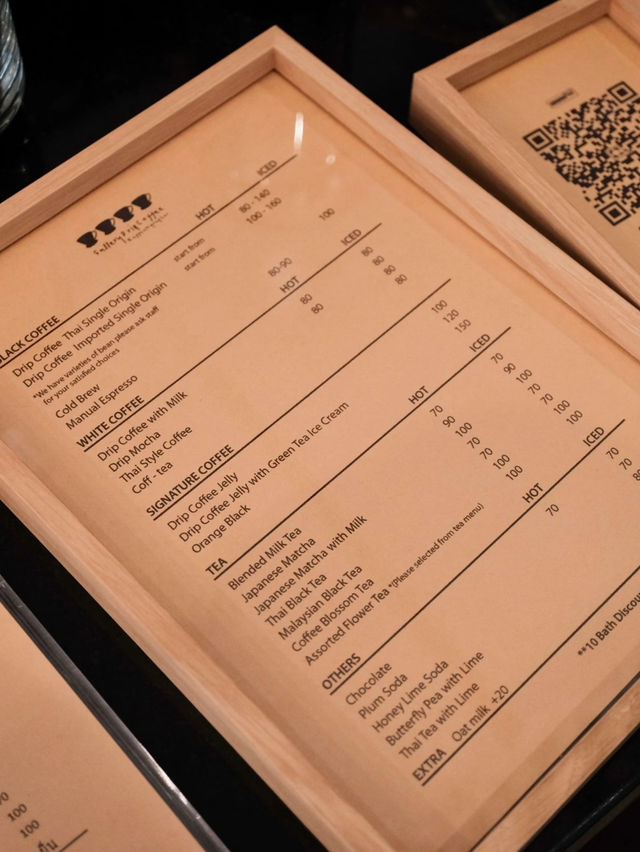 Gallery Drip Coffee
BLACK COFFEE HOT ICED
Drip Coffee Thai Single Origin start from 80 - 140
Drip Coffee Imported Single Origin start from 100 - 160
*We have varieties of bean please ask staff
for your satisfied choices
Cold Brew 100
Manual Espresso 80-90
WHITE COFFEE HOT ICED
Drip Coffee with Milk 80 80
Drip Mocha 80 80
Thai Style Coffee 80
Coff - tea
SIGNATURE COFFEE
Drip Coffee Jelly 100
Drip Coffee Jelly with Green Tea Ice Cream 120
Orange Black 150
TEA HOT ICED
Blended Milk Tea 70 70
Japanese Matcha 90 90
Japanese Matcha with Milk 100 100
Thai Black Tea 70 70
Malaysian Black Tea 70 70
Coffee Blossom Tea 100 100
Assorted Flower Tea *(Please selected from tea menu) 100 100
OTHERS HOT ICED
Chocolate 70 70
Plum Soda 70
Honey Lime Soda
Butterfly Pea with Lime
Thai Tea with Lime
EXTRA Oat milk +20
**10 Bath
100
100